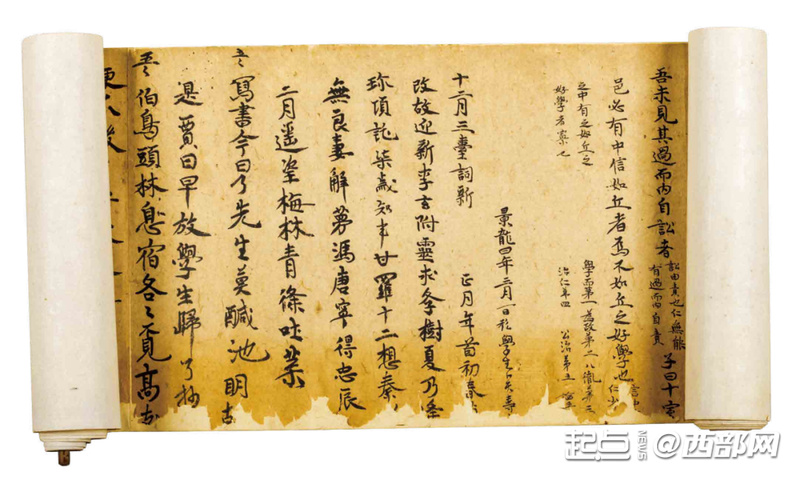 吾未見其過而内自訟者
訟由責也仁無能
有過而内自責
子曰十室
邑必有中信如丘者焉不如丘之好學也
之中有之如丘之
好學者寡也
學而第一 為政第二 八佾第三
治仁第四 公治第五
景龍四年三月一日私學生卜天壽
十二月三臺詞新 正月年首初春
改故迎新李玄附靈求學樹夏乃逢
珍項託柒歲知事甘羅十二想秦
無良妻解夢馮唐寧得忠辰
二月遥望梅林青條吐葉
寫書今日了先生莫鹹池明
是賈日早放學生歸 了抄
伯鳥頭林息宿各各覓高
起点NEWS @西部网